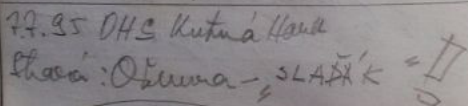 7.7.95 DHS Kutná Hora
Stará: Ošuma - „SLAŠŤÁK“